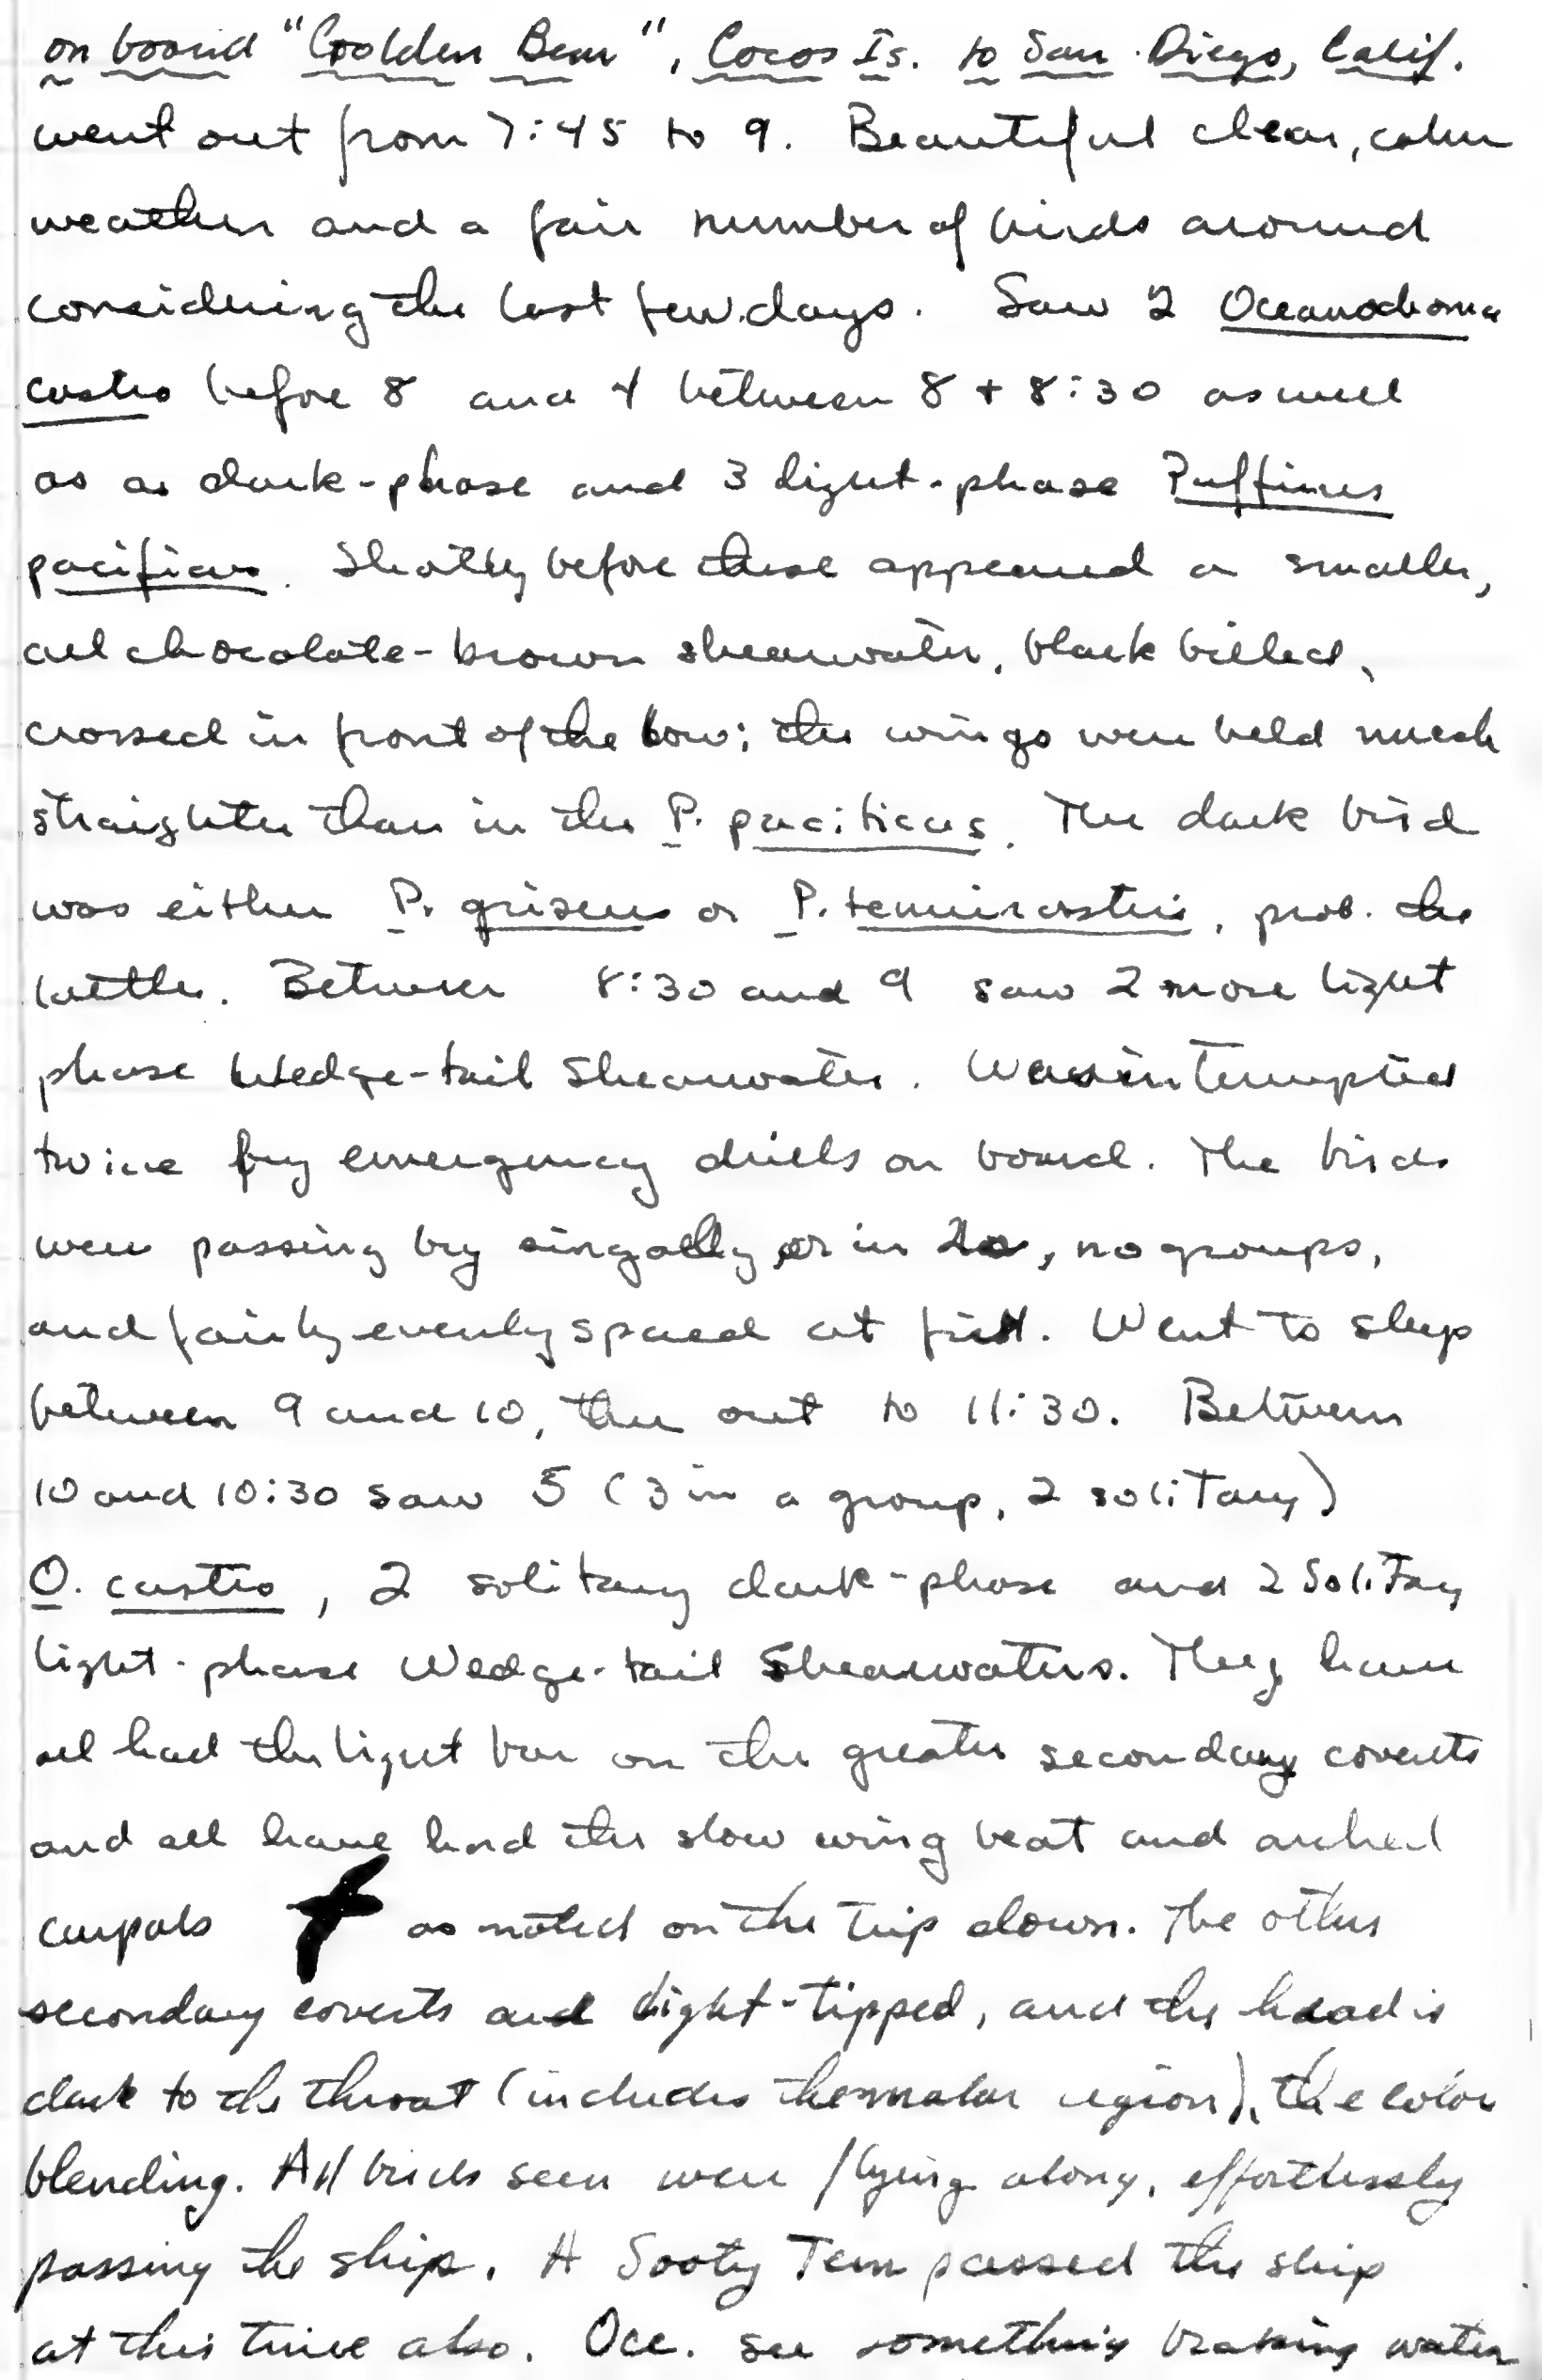 on board "Golden Bear", Cocos Is. to San Diego, Calif.
went out from 7:45 to 9. Beautiful clear, calm
weather and a fair number of birds around
considering the last few days. Saw 2 Oceanodroma
castro before 8 and 4 between 8 + 8:30 as well
as a dark-phase and 3 light-phase Puffinus
pacificus. Shortly before these appeared a smaller,
all chocolate-brown shearwater, black billed,
crossed in front of the bow; the wings were held much
straighter than in the P. pacificus. The dark bird
was either P. griseus or P. tenuirostris, prob. the
latter. Between 8:30 and 9 saw 2 more light
phase Wedge-tail Shearwater. Was interrupted
twice by emergency drills on board. The birds
were passing by singally or in 2s, no groups,
and fairly evenly spaced at first. Went to sleep
between 9 and 10, then out to 11:30. Between
10 and 10:30 saw 5 (3 in a group, 2 solitary)
O. castro, 2 solitary dark-phase and 2 solitary
light-phase Wedge-tail Shearwaters. They have
all had the light bar on the greater secondary coverts
and all have had the slow wing beat and arched
carpals as noted on the trip down. The other
secondary coverts are light-tipped, and the head is
dark to the throat (includes the malar region), the color
blending. All birds seen were flying along, effortlessly
passing the ship. A Sooty Tern passed the ship
at this time also. Occ. see something braking water